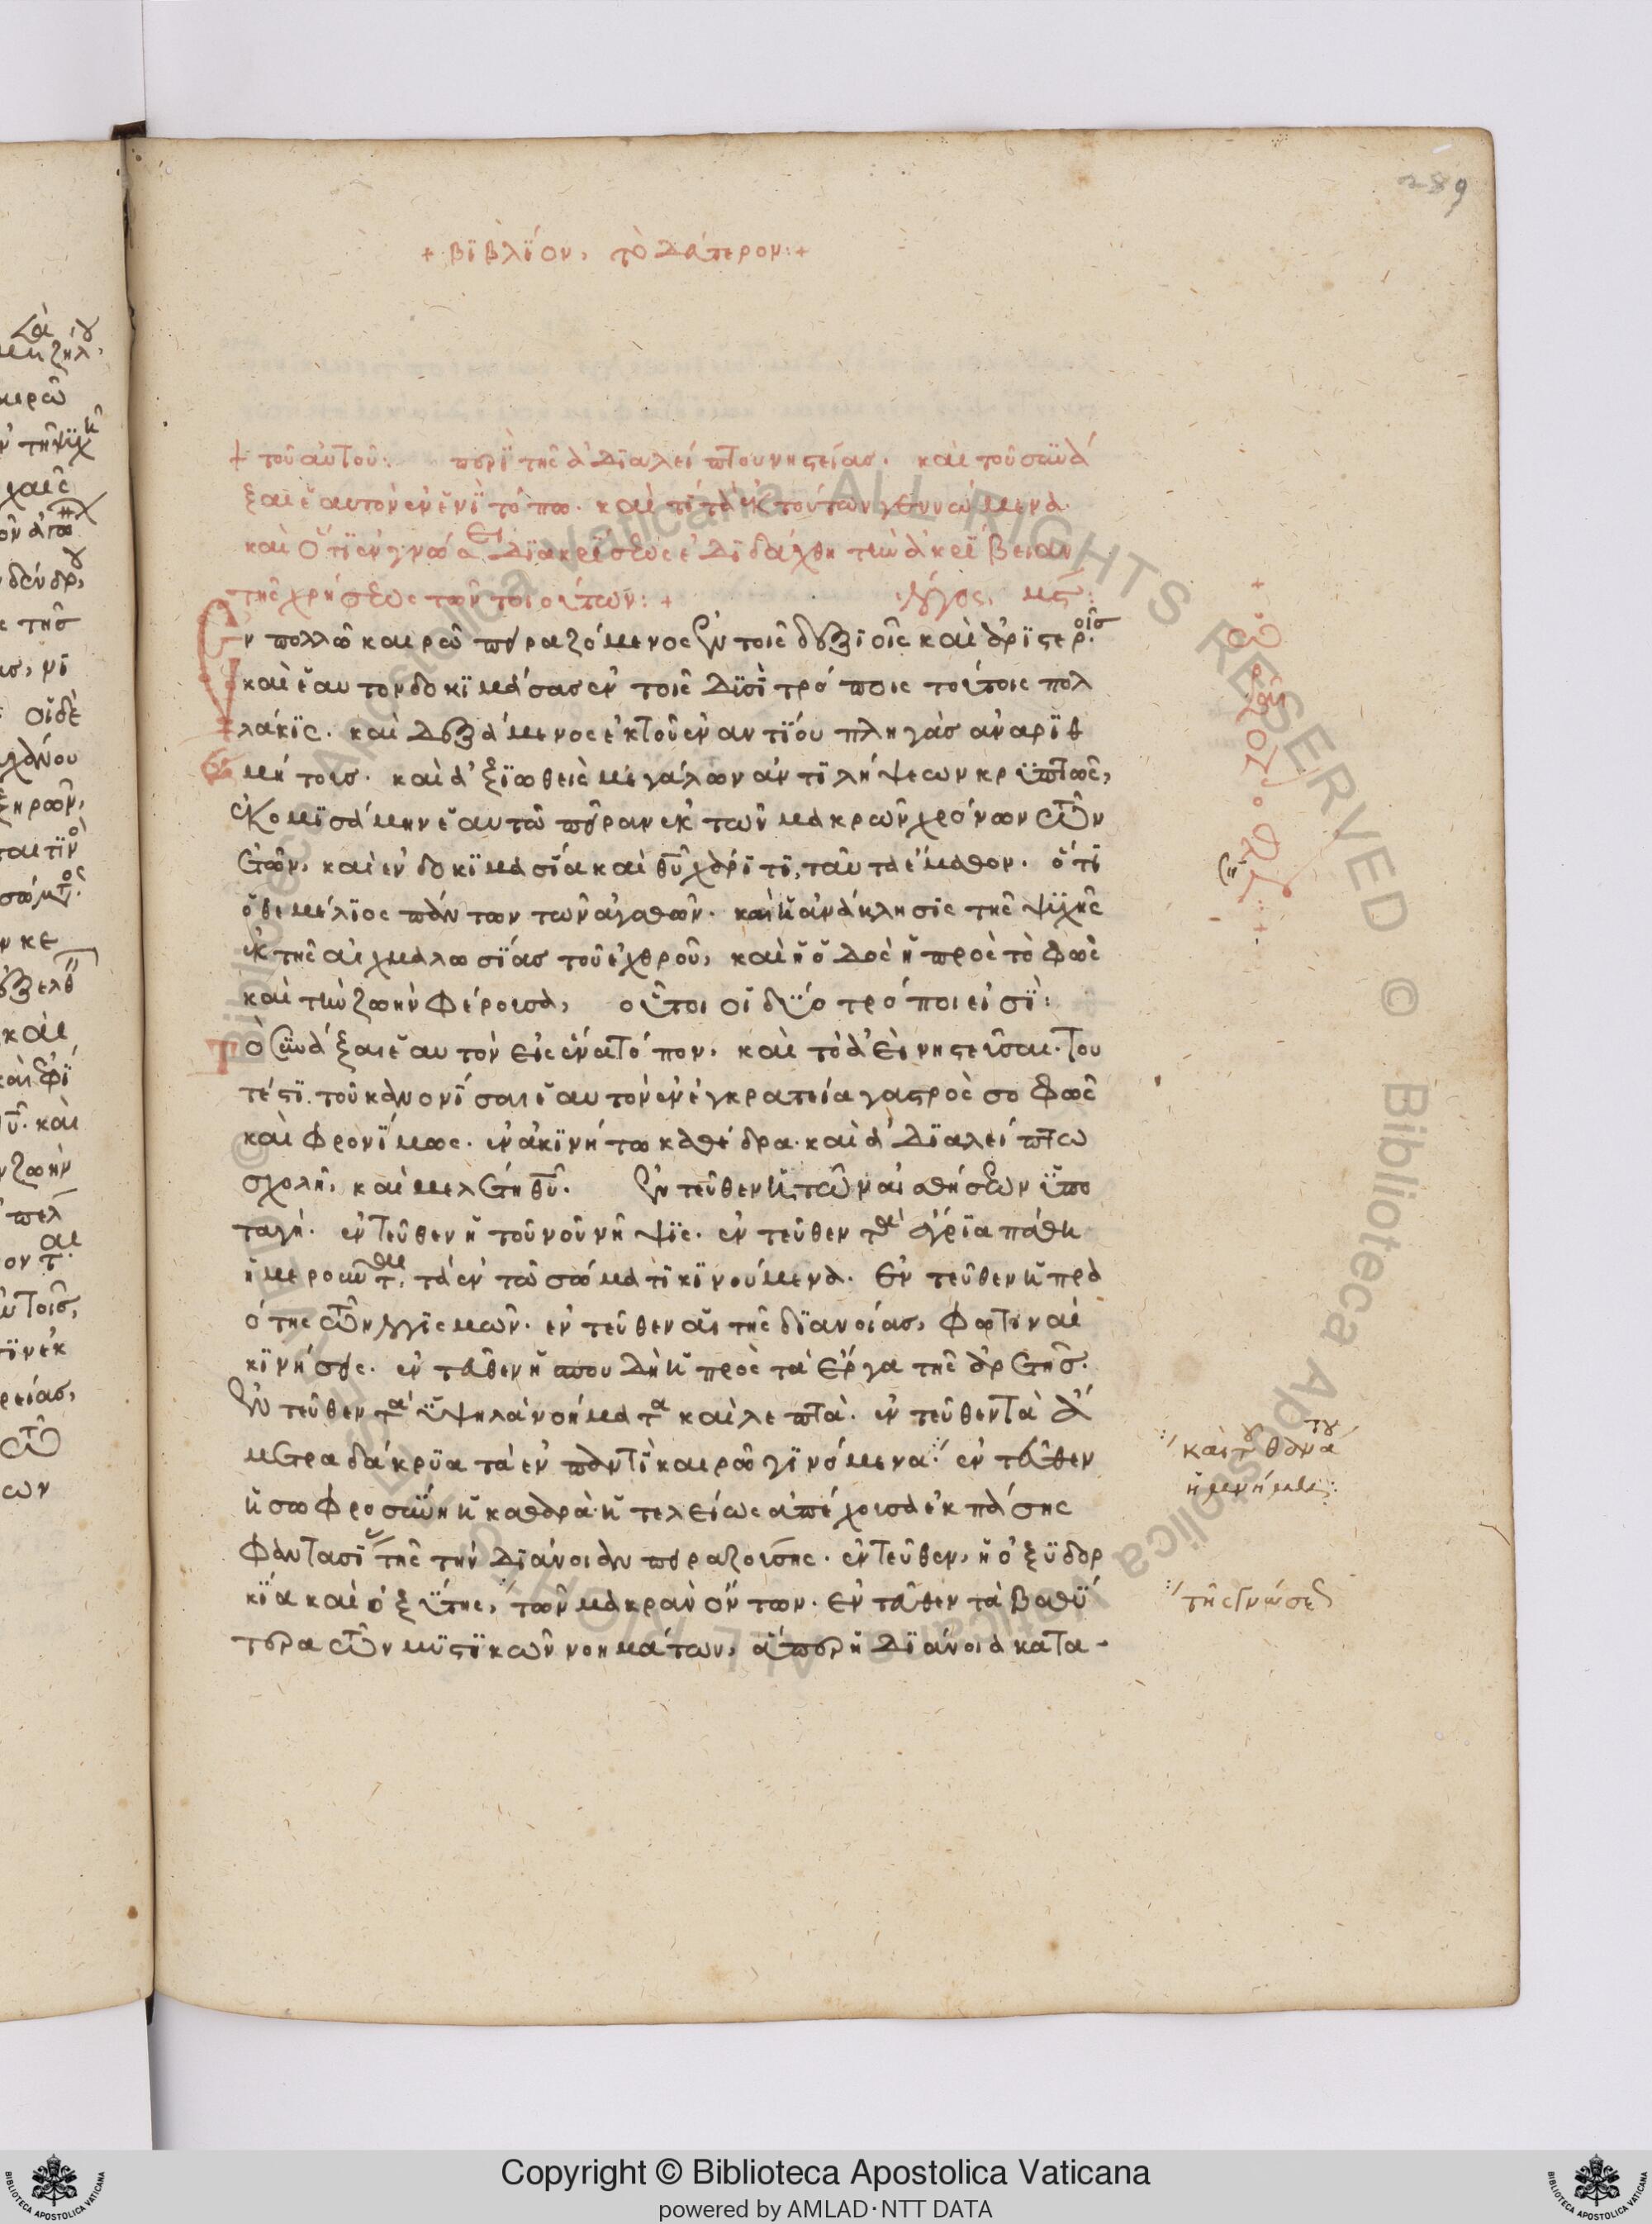 289
+ βϊβλϊον, τὸ δεύτερον:+
+ τοῦ αὐτοῦ: περϊ τῆς ἀδϊαλείπτου νηστείας. καὶ τοῦ συνά
ξαι ἑαυτὸν ἐν ἑνϊ τόπω. καὶ τί τὰ ἐκ τούτων γεννώμενα.
καὶ ὅτϊ ἐν γνώσει διακρίσεως ἐδϊδάχθη τὴν ἀκρίβειαν
τῆς χρήσεως τῶν τοιούτων:+ λόγος, μς:
Ἐν πολλῶ καιρῶ πειραζόμενος ἐν τοῖς δεξϊοῖς καὶ ἀρϊστεροῖς
καὶ ἑαυτὸν δοκϊμάσας ἐν τοῖς δϊσϊ τρόποις τούτοις πολ
λάκϊς. καὶ δεξάμενος ἐκ τοῦ ἐναντϊου πληγὰς ἀναρϊθ
μήτοις. καὶ ἀξϊωθεὶς μεγάλων ἀντϊλήψεων κρυπτῶς,
ἐκομϊσάμην ἑαυτῶ πεῖραν ἐκ τῶν μακρῶν χρόνων τῶν
ἐτῶν, καὶ ἐν δοκϊμασϊα καὶ θυ χάρϊτϊ, ταῦτα ἔμαθον. ὅτϊ
ὁ θεμέλϊος πάντων τῶν ἀγαθῶν. καὶ ἡ ἀνάκλησϊς τῆς ψϋχῆς
ἐκ τῆς αἰχμαλωσϊας τοῦ ἐχθροῦ, καὶ ἡ ὁδὸς ἡ πρὸς τὸ φῶς
καὶ τὴν ζωὴν φέρουσα, οὗτοι οἱ δϋο τρόποι εἰσϊ:
Τὸ συνάξαι ἑαυτὸν εἰς ἕνα τόπον. καὶ τὸ ἀεὶ νηστεῦσαι. του
τέστϊ. τοῦ κανονϊσαι ἑαυτὸν ἐν ἐγκρατεία γαστρὸς σοφῶς
καὶ φρονϊμως. ἐν ἀκϊνήτω καθέδρα. καὶ ἀδϊαλείπτω
σχολῆ, καὶ μελέτη θυ. ἐντεῦθεν ἡ τῶν αἰσθήσεων ϋπο
ταγή. ἐντεῦθεν ἡ τοῦ νοῦ νῆψϊς. ἐντεῦθεν τὰ ἄγρϊα πάθη
ἡμεροῦνται, τὰ ἐν τῶ σώματϊ κϊνούμενα. ἐντεῦθεν ἡ πρα
ότης τῶν λογϊσμῶν. ἐντεῦθεν αἱ τῆς δϊανοίας, φωτιναὶ
κϊνήσεις. ἐντεῦθεν ἡ σπουδὴ ἡ πρὸς τὰ ἔργα τῆς ἀρετῆς.
ἐντεῦθεν τὰ ϋψηλὰ νοήματα καὶ λεπτά. ἐντεῦθεν τὰ ἄ
μετρα δάκρϋα τὰ ἐν παντϊ καιρῶ γϊνόμενα. ἐντεῦθεν
ἡ σωφροσύνη ἡ καθαρὰ. ἡ τελείως ἀπέχουσα ἐκ πάσης
φαντασϊας τῆς τὴν δϊάνοιαν πειραζούσης. ἐντεῦθεν, ἡ ὀξϋδορ
κϊα καὶ ὀξϋτης, τῶν μακρὰν ὄντων. ἐντεῦθεν τὰ βαθϋ
τερα τῶν μϋστϊκῶν νοημάτων, ἅπερ ἡ δϊάνοια κατα-
καὶ τοῦ θανάτου
ἡ μνήμη:
τῆς γνώσεως
Copyright © Biblioteca Apostolica Vaticana
powered by AMLAD·NTT DATA